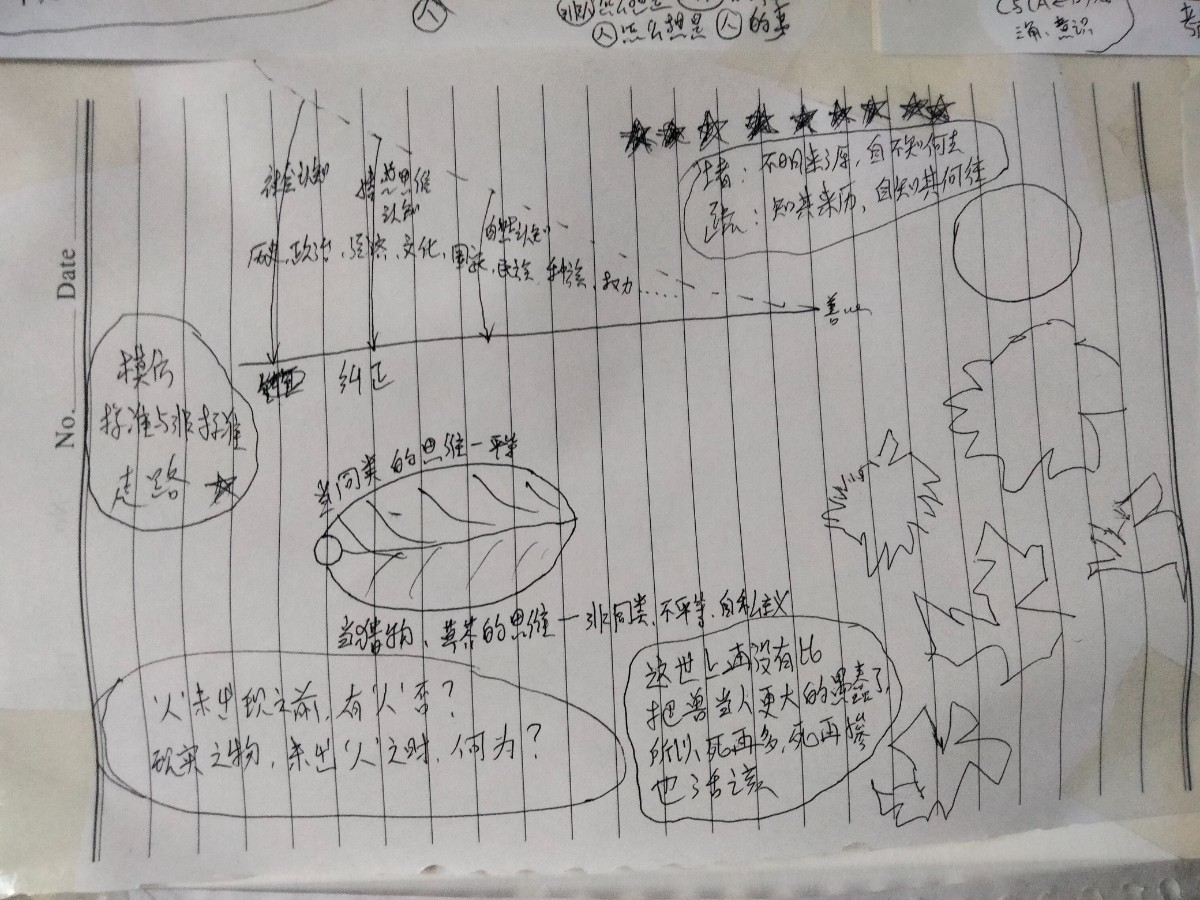 人
人怎么想是人的事
三角、意识
不明来了原，自不知何去
知其来历，自知其何往
社会认知
思维
认知
自然认知
历史、政治、经济、文化、国家、民族、种族、权力……
善
纠正
模仿
标准与非标准
走路
当同类的思维一平等
当猎物、草芥的思维一非同类、不平等、自私主义
‘人’未出现之前，有‘人’否？
现实之物，未出‘人’之时，何为？
这世上再没有比
把兽当人更大的愚蠢了，
所以，死再多，死再惨
也活该
No.
Date